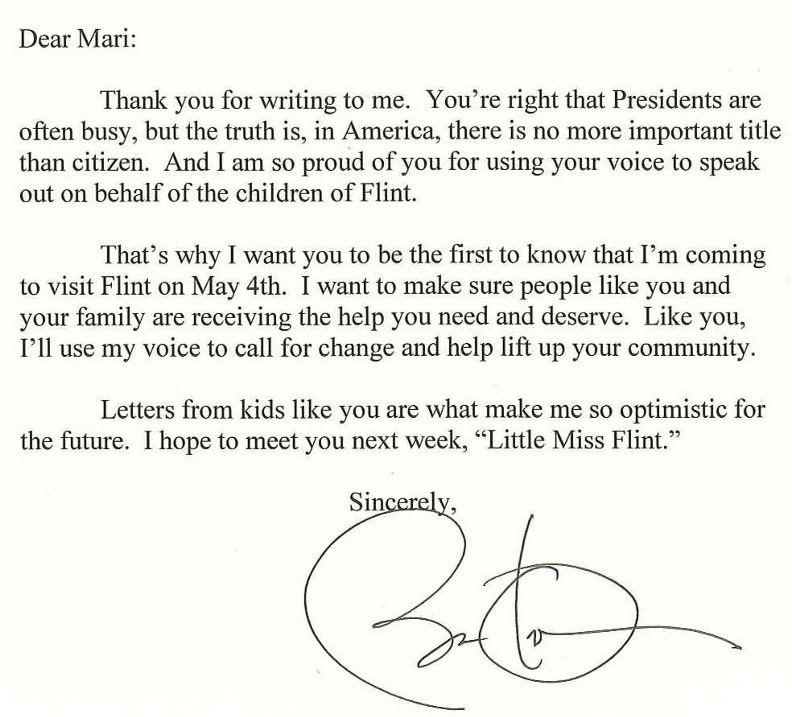 Dear Mari:
Thank you for writing to me. You’re right that Presidents are
often busy, but the truth is, in America, there is no more important title
than citizen. And I am so proud of you for using your voice to speak
out on behalf of the children of Flint.
That’s why I want you to be the first to know that I’m coming
to visit Flint on May 4th. I want to make sure people like you and
your family are receiving the help you need and deserve. Like you,
I’ll use my voice to call for change and help lift up your community.
Letters from kids like you are what make me so optimistic for
the future. I hope to meet you next week, “Little Miss Flint.”
Sincerely,